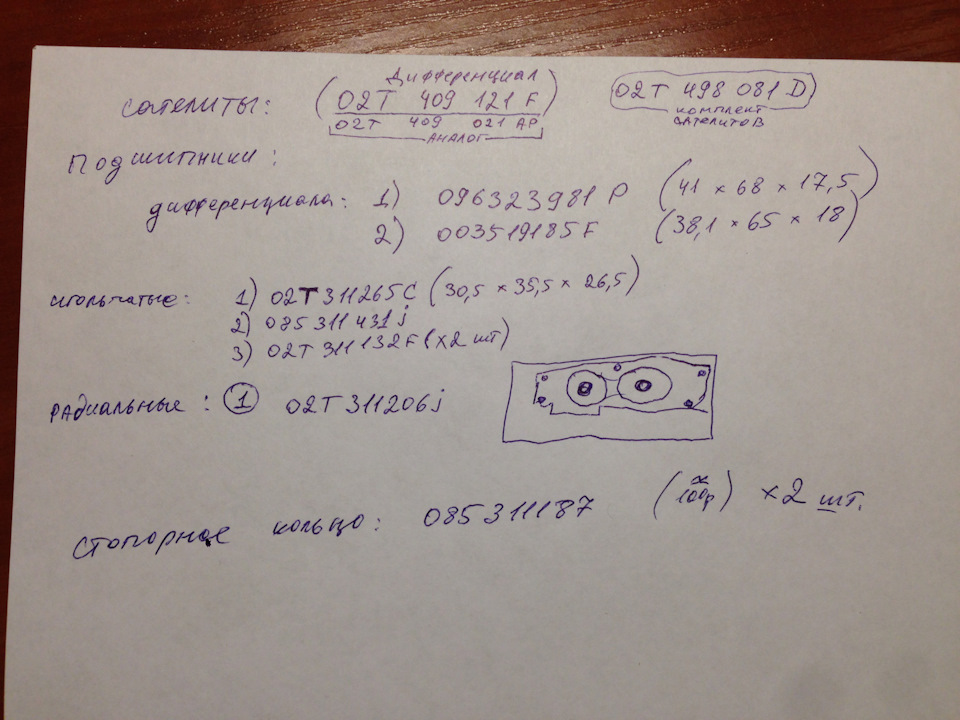 Дифференциал
Сателиты: (02T 409 121 F) 02T 498 081 D
02T 409 021 AP комплект
Аналог сателитов
Подшипники:
дифференциала: 1) 096323981 P (41 × 68 × 17,5)
2) 003519185F (38,1 × 65 × 18)
игольчатые: 1) 02T311265C (30,5 × 35,5 × 26,5)
2) 085311431j
3) 02T311132F (x2 шт)
радиальные: 1 02T311206j
стопорное кольцо: 085311187 (100р) ×2 шт.